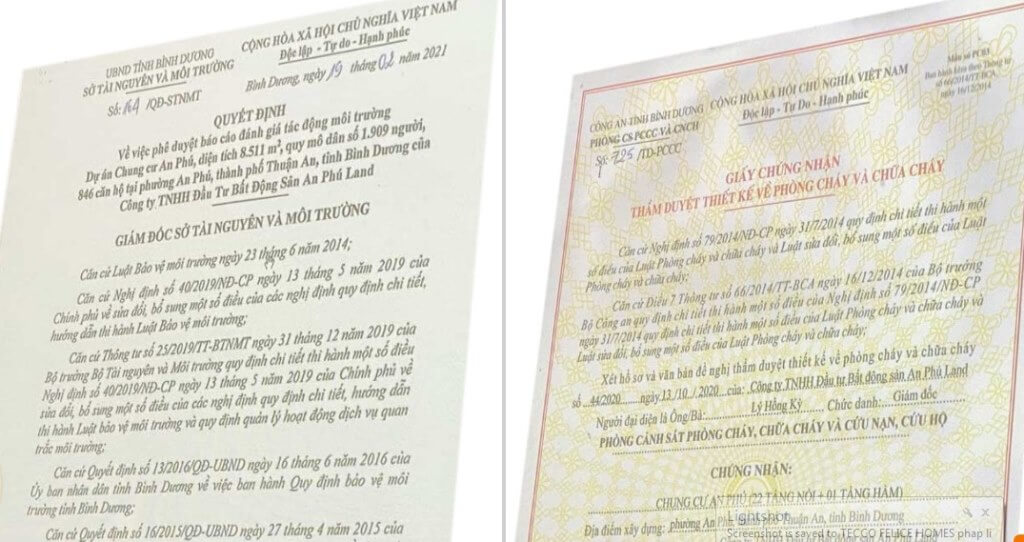 UBND TỈNH BÌNH DƯƠNG
SỞ TÀI NGUYÊN VÀ MÔI TRƯỜNG
Số: 164 /QĐ-STNMT
CỘNG HÒA XÃ HỘI CHỦ NGHĨA VIỆT NAM
Độc lập - Tự do - Hạnh phúc
Bình Dương, ngày 19 tháng 02 năm 2021
QUYẾT ĐỊNH
Về việc phê duyệt báo cáo đánh giá tác động môi trường
Dự án Chung cư An Phú, diện tích 8.511 m², quy mô dân số 1.909 người,
846 căn hộ tại phường An Phú, thành phố Thuận An, tỉnh Bình Dương của
Công ty TNHH Đầu Tư Bất Động Sản An Phú Land
GIÁM ĐỐC SỞ TÀI NGUYÊN VÀ MÔI TRƯỜNG
Căn cứ Luật Bảo vệ môi trường ngày 23 tháng 6 năm 2014;
Căn cứ Nghị định số 40/2019/NĐ-CP ngày 13 tháng 5 năm 2019 của
Chính phủ về sửa đổi, bổ sung một số điều của các nghị định quy định chi tiết,
hướng dẫn thi hành Luật Bảo vệ môi trường;
Căn cứ Thông tư số 25/2019/TT-BTNMT ngày 31 tháng 12 năm 2019 của
Bộ trưởng Bộ Tài nguyên và Môi trường quy định chi tiết thi hành một số điều
Nghị định số 40/2019/NĐ-CP ngày 13 tháng 5 năm 2019 của Chính phủ về
sửa đổi, bổ sung một số điều của các nghị định quy định chi tiết, hướng dẫn
thi hành Luật bảo vệ môi trường và quy định quản lý hoạt động dịch vụ quan
trắc môi trường;
Căn cứ Quyết định số 13/2016/QĐ-UBND ngày 16 tháng 6 năm 2016 của
Ủy ban nhân dân tỉnh Bình Dương về việc ban hành Quy định bảo vệ môi
trường tỉnh Bình Dương;
Căn cứ Quyết định số 16/2015/QĐ-UBND ngày 27 tháng 4 năm 2015 của
CÔNG AN TỈNH BÌNH DƯƠNG
PHÒNG CS PCCC VÀ CNCH
Số: 725 /TD-PCCC
CỘNG HÒA XÃ HỘI CHỦ NGHĨA VIỆT NAM
Độc lập - Tự Do - Hạnh phúc
Mẫu số PC03
Ban hành kèm theo Thông tư
số 66/2014/TT-BCA
ngày 16/12/2014
GIẤY CHỨNG NHẬN
THẨM DUYỆT THIẾT KẾ VỀ PHÒNG CHÁY VÀ CHỮA CHÁY
Căn cứ Nghị định số 79/2014/NĐ-CP ngày 31/7/2014 quy định chi tiết thi hành một
số điều của Luật Phòng cháy và chữa cháy và Luật sửa đổi, bổ sung một số điều của Luật
Phòng cháy và chữa cháy;
Căn cứ Điều 7 Thông tư số 66/2014/TT-BCA ngày 16/12/2014 của Bộ trưởng
Bộ Công an quy định chi tiết thi hành một số điều của Nghị định số 79/2014/NĐ-CP
ngày 31/7/2014 quy định chi tiết thi hành một số điều của Luật Phòng cháy và chữa cháy và
Luật sửa đổi, bổ sung một số điều của Luật Phòng cháy và chữa cháy;
Xét hồ sơ và văn bản đề nghị thẩm duyệt thiết kế về phòng cháy và chữa cháy
số ..44/2020.... ngày 13 /10 / 2020 của: Công ty TNHH Đầu tư Bất động sản An Phú Land
Người đại diện là Ông/Bà: Lý Hồng Kỳ Chức danh: Giám đốc
PHÒNG CẢNH SÁT PHÒNG CHÁY, CHỮA CHÁY VÀ CỨU NẠN, CỨU HỘ
CHỨNG NHẬN:
CHUNG CƯ AN PHÚ (22 TẦNG NỔI + 01 TẦNG HẦM)
Địa điểm xây dựng: phường An Phú, Thuận An, tỉnh Bình Dương
Lightshot
Screenshot is saved to TECCO FELICE HOMES phap li